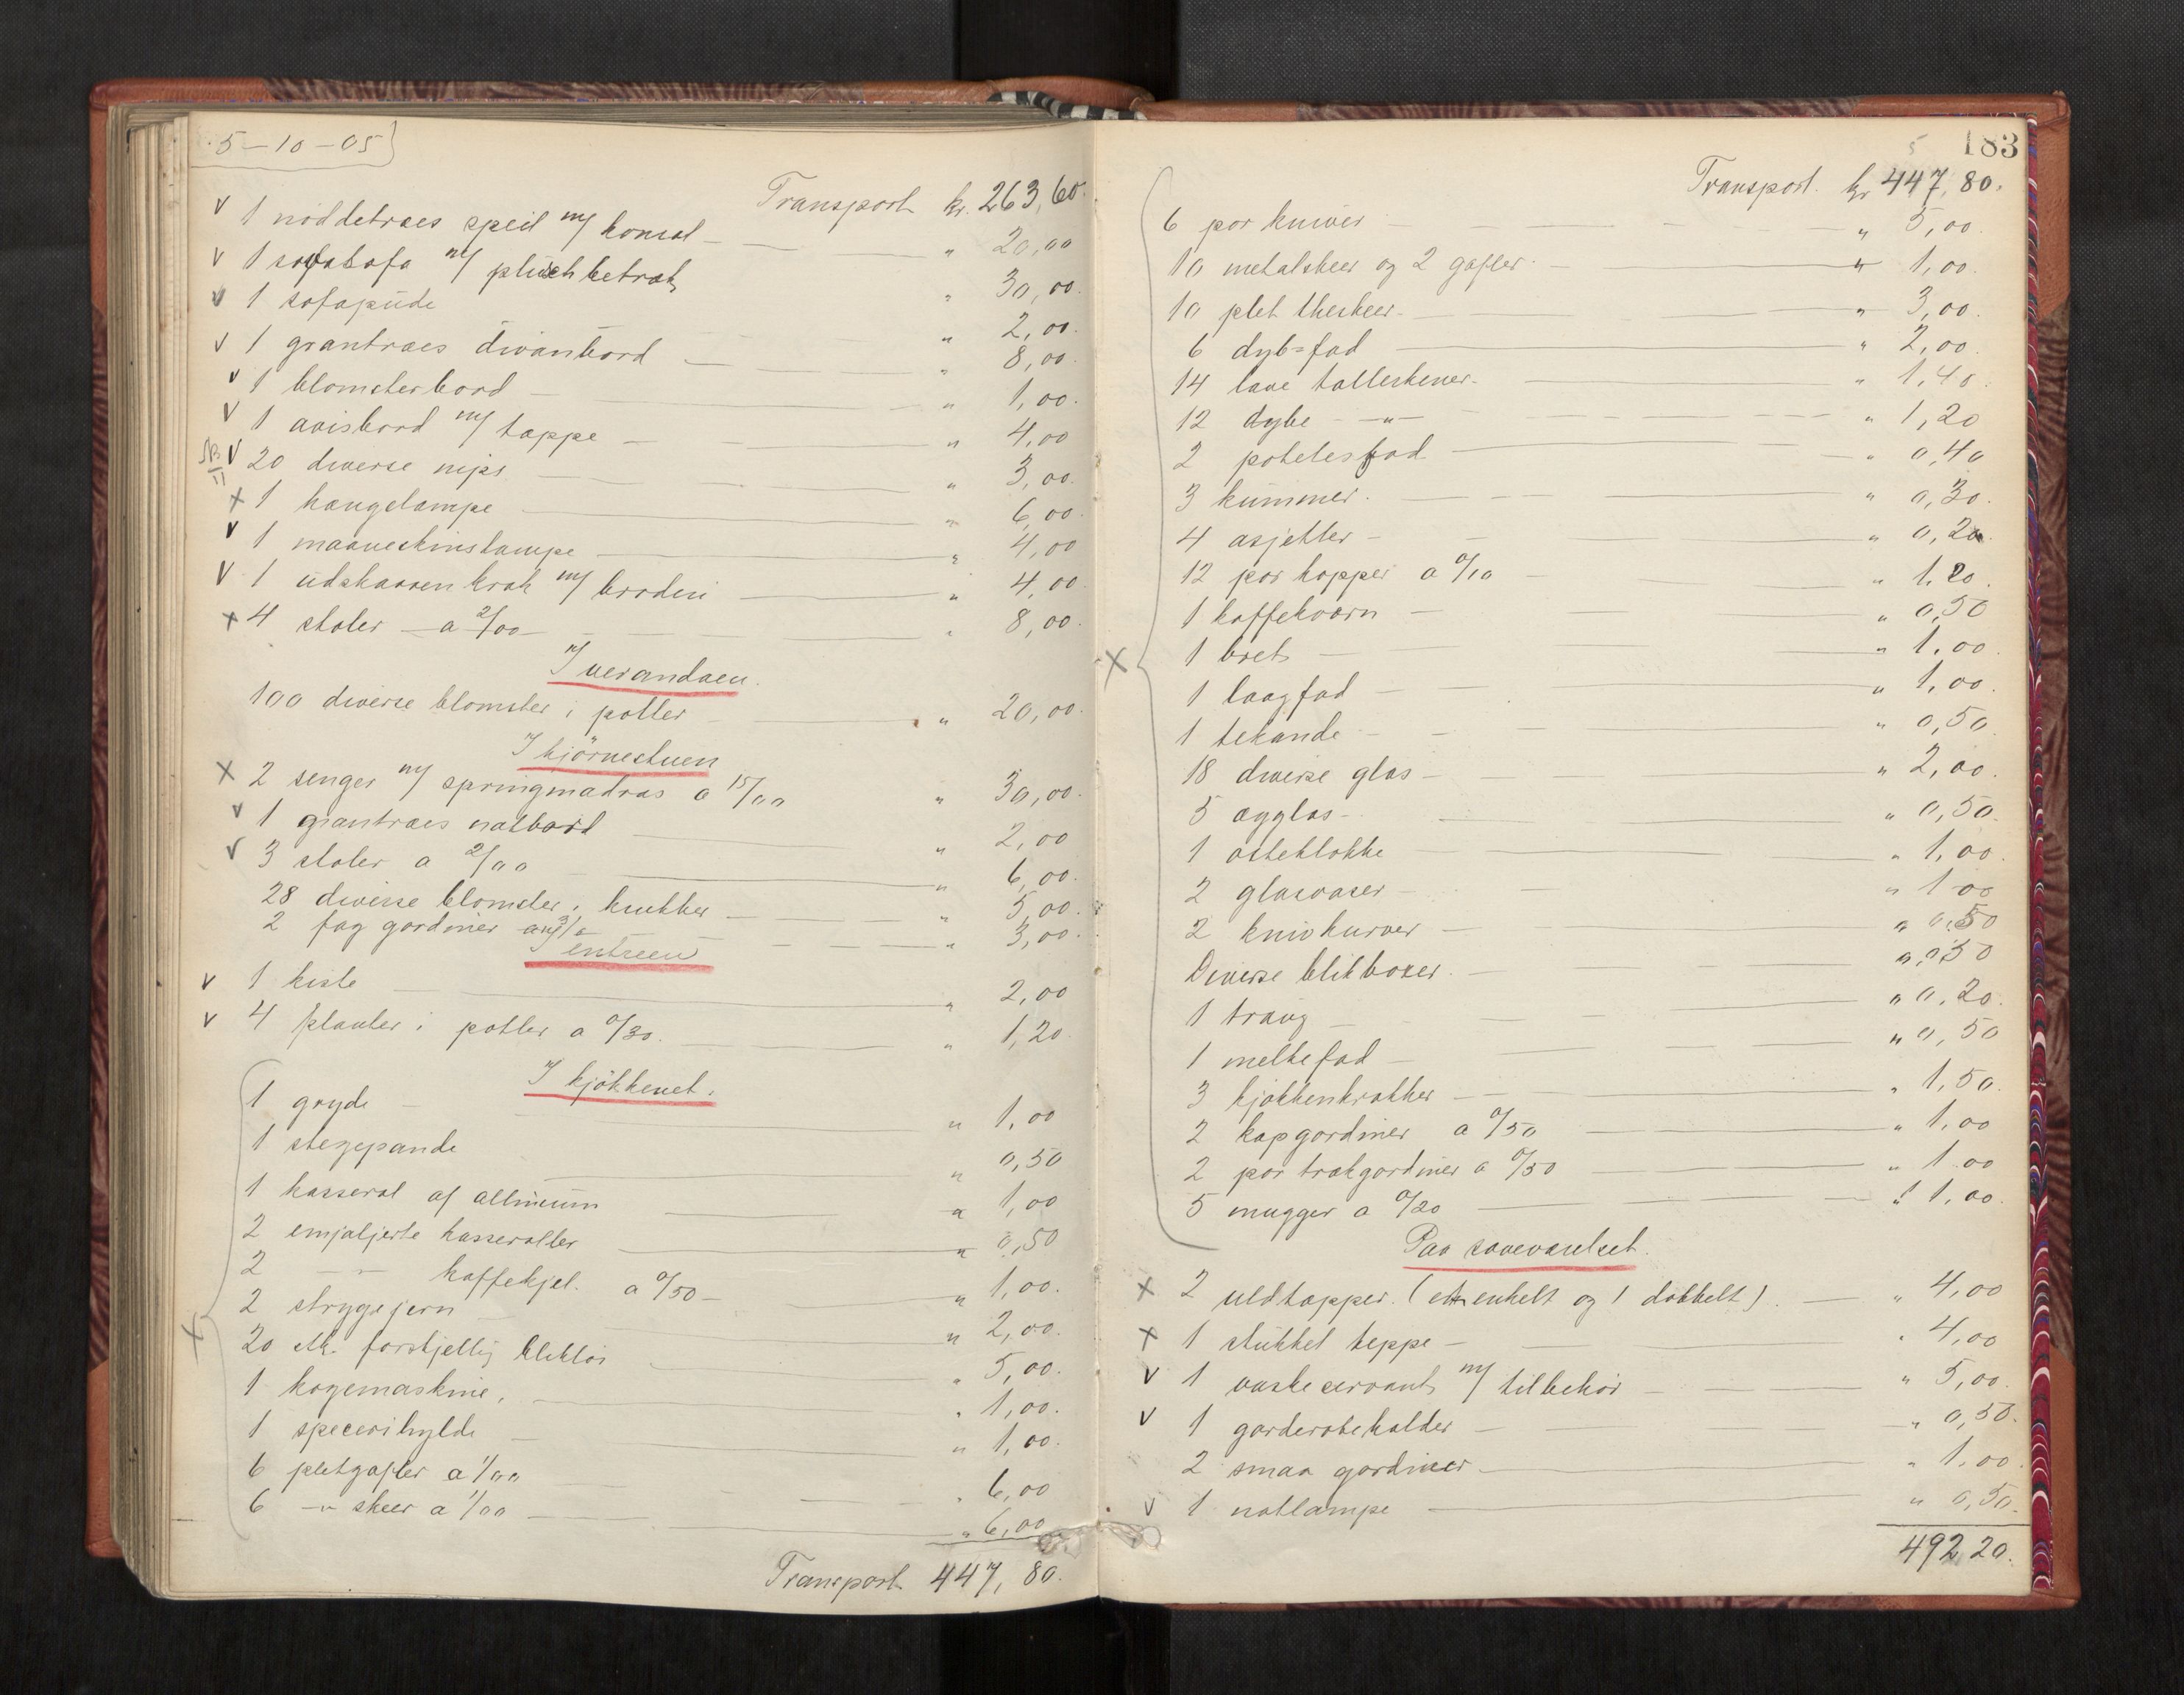 5-10-05
Transport kr. 263,60.
v 1 nöddetræs speil m/ konsol — " 20,00
v 1 sovesofa m/ plüschbetræk " 30,00.
v 1 sofapude " 2,00.
v 1 grantræs divanbord — " 8,00.
v 1 blomsterbord — " 1,00.
v 1 avisbord m/ tæppe — " 4,00
v 20 diverse nips — " 3,00.
x 1 hængelampe — " 6,00
v 1 maaneskinslampe — " 4,00
v 1 udskaaren krak m/ broderi — " 4,00
x 4 stoler — a 2/00 — " 8,00.
I verandaen.
100 diverse blomster i potter — " 20,00.
I hjörnestuen
x 2 senger m/ springmadras a 15/00 " 30,00.
v 1 grantræs natbord — " 2,00
v 3 stoler a 2/00 — " 6,00.
28 diverse blomster i krukker — " 5,00.
2 fag gardiner — " 3,00.
I entreen
v 1 kiste — " 2,00
v 4 planter i potter a 0/30. — " 1,20
I kjökkenet.
1 gryde — " 1,00
1 stegepande — " 0,50
1 kasserol af allminium — " 1,00
2 emjaljerte kasseroller — " 0,50
2 — " — kaffekjel. a 0/50 — " 1,00.
2 strygejern — " 2,00.
20 stk. forskjellig bliktöi — " 5,00.
1 kogemaskine. — " 1,00.
1 specerihylde — " 1,00.
6 pletgafler a 1/00 — " 6,00
x 6 — " skeer a 1/00 — " 6,00
Transport 447,80.
183
5
Transport. kr 447,80.
6 par kniver — " 5,00.
10 metalskeer og 2 gafler. — " 1,00.
10 plet theskeer. — " 3,00.
6 dyb=fad — " 2,00.
14 lave tallerkener. — " 1,40.
12 dybe — " — " 1,20
2 potetesfad — " 0,40
3 kummer. — " 0,30.
4 asjetter — " 0,20.
12 par kopper a 0/10 — " 1,20.
1 kaffekværn — " 0,50
x 1 bret — " 1,00.
1 laagfad — " 1,00.
1 tekande — " 0,50
18 diverse glas — " 2,00.
5 ægglas — " 0,50.
1 osteklokke — " 1,00.
2 glasvaser — " 1,00
2 knivkurver — " 0,50
Diverse blikboxer. — " 0,50
1 traug — " 0,20.
1 meltefad — " 0,50
3 kjökkenkrakker — " 1,50.
2 kapgardiner a 0/50 — " 1,00
2 par trækgardiner a 0/50 — " 1.00
5 mugger a 0/20 — " 1,00.
Paa soveværelset.
x 2 uldtæpper. (et enkelt og 1 dobbelt). — " 4,00
x 1 stukket teppe — " 4,00
v 1 vaskeservant m/ tilbehör — " 5,00.
v 1 garderobeholder — " 0,50.
2 smaa gardiner — " 1,00.
v 1 natlampe — " 0,50.
492,20.